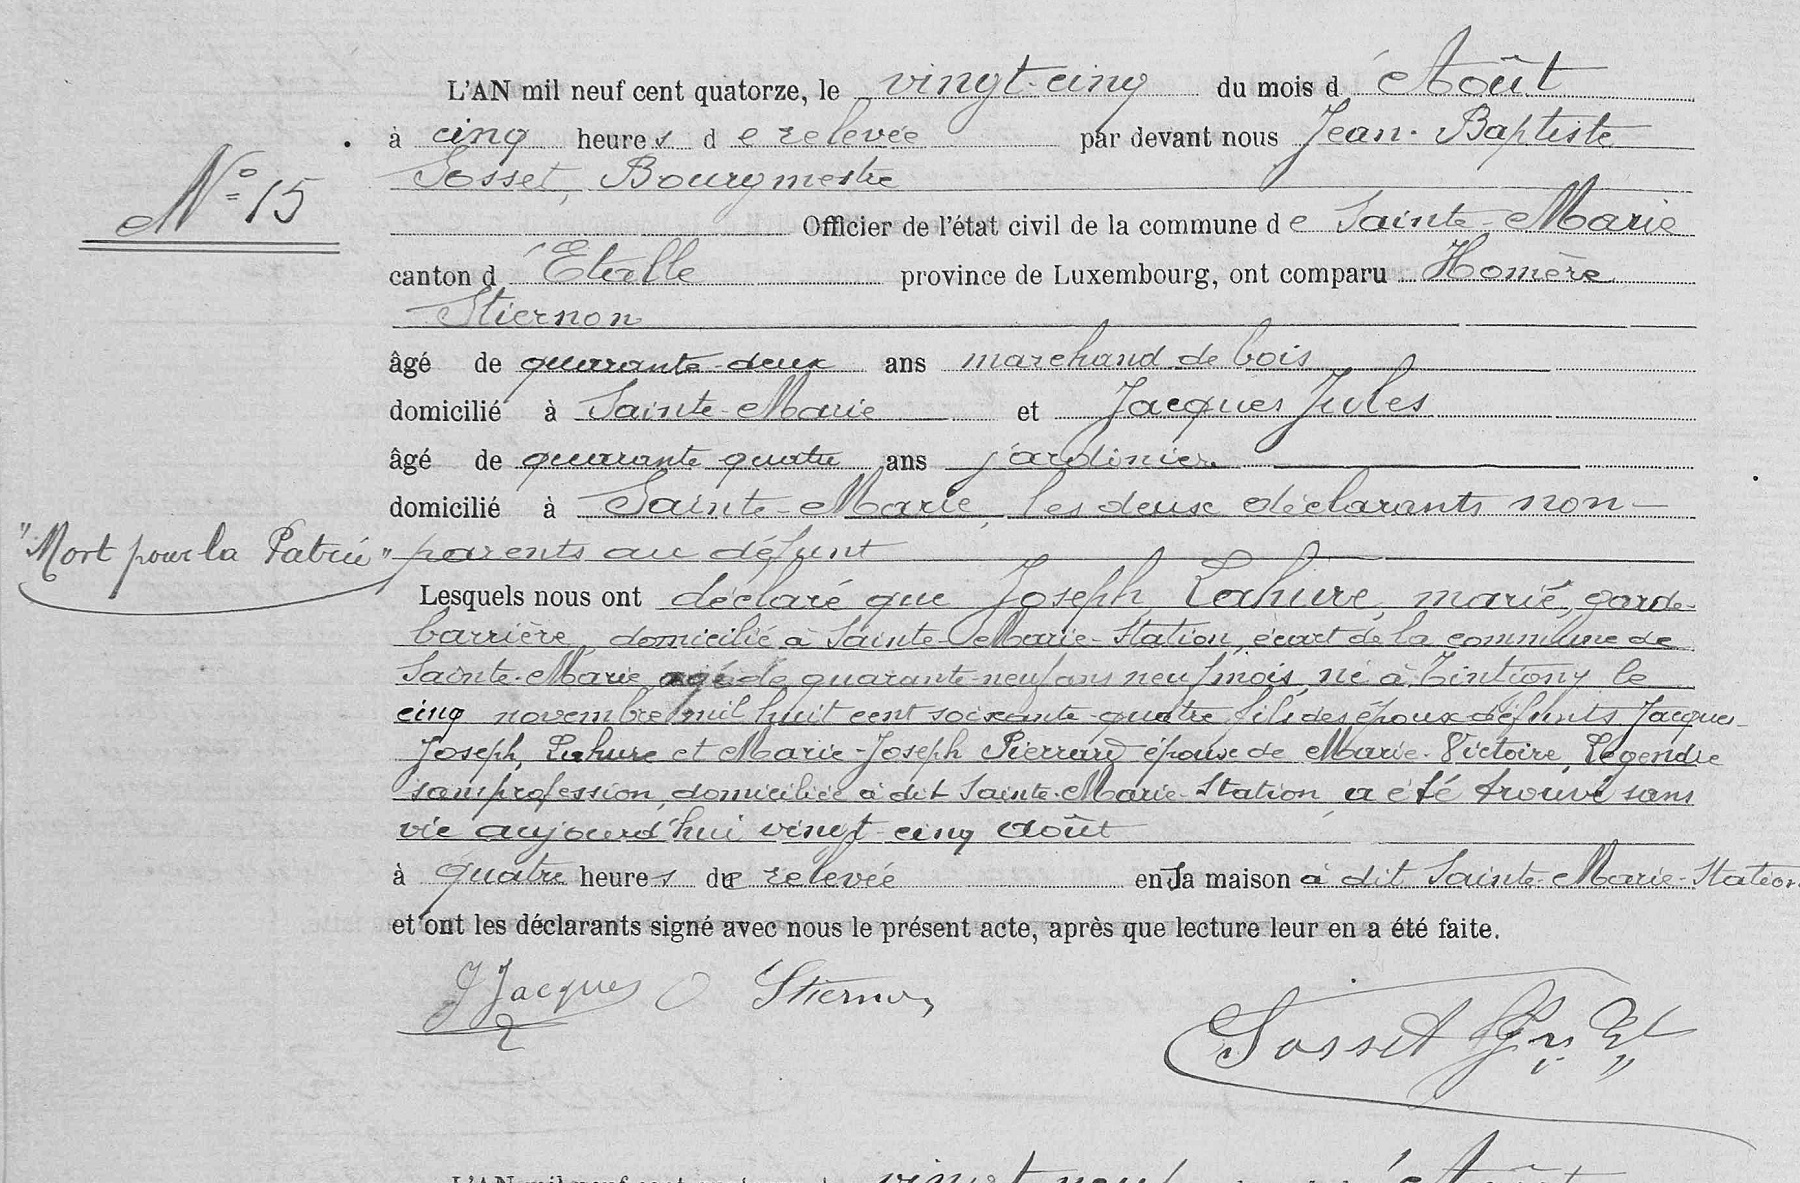 L'AN mil neuf cent quatorze, le vingt-cinq du mois d'Août
à cinq heures de relevée par devant nous Jean-Baptiste
Nº 15
Sosset, Bourgmestre
Officier de l'état civil de la commune de Sainte-Marie
canton d'Etalle province de Luxembourg, ont comparu Homère
Stiernon
âgé de quarante-deux ans marchand de bois
domicilié à Sainte-Marie et Jacques Jules
âgé de quarante quatre ans jardinier
domicilié à Sainte-Marie, les deux déclarants non-
"Mort pour la Patrie" parents au défunt
Lesquels nous ont déclaré que Joseph, Lahure, marié, garde-
barrière, domicilié à Sainte-Marie-Station, écart de la commune de
Sainte-Marie âgé de quarante-neuf ans neuf mois, né à Tintigny le
cinq novembre mil huit cent soixante-quatre fils des époux défunts Jacques-
Joseph, Lahure et Marie-Joseph Pierrard époux de Marie-Victoire, Légendre
sans profession, domiciliée à dit Sainte-Marie-Station, a été trouvé sans
vie aujourd'hui vingt-cinq août
à quatre heures de relevée en sa maison à dit Sainte-Marie-Station
et ont les déclarants signé avec nous le présent acte, après que lecture leur en a été faite.
J Jacques Stiernon
Sosset
L'AN mil neuf cent vingt neuf Août